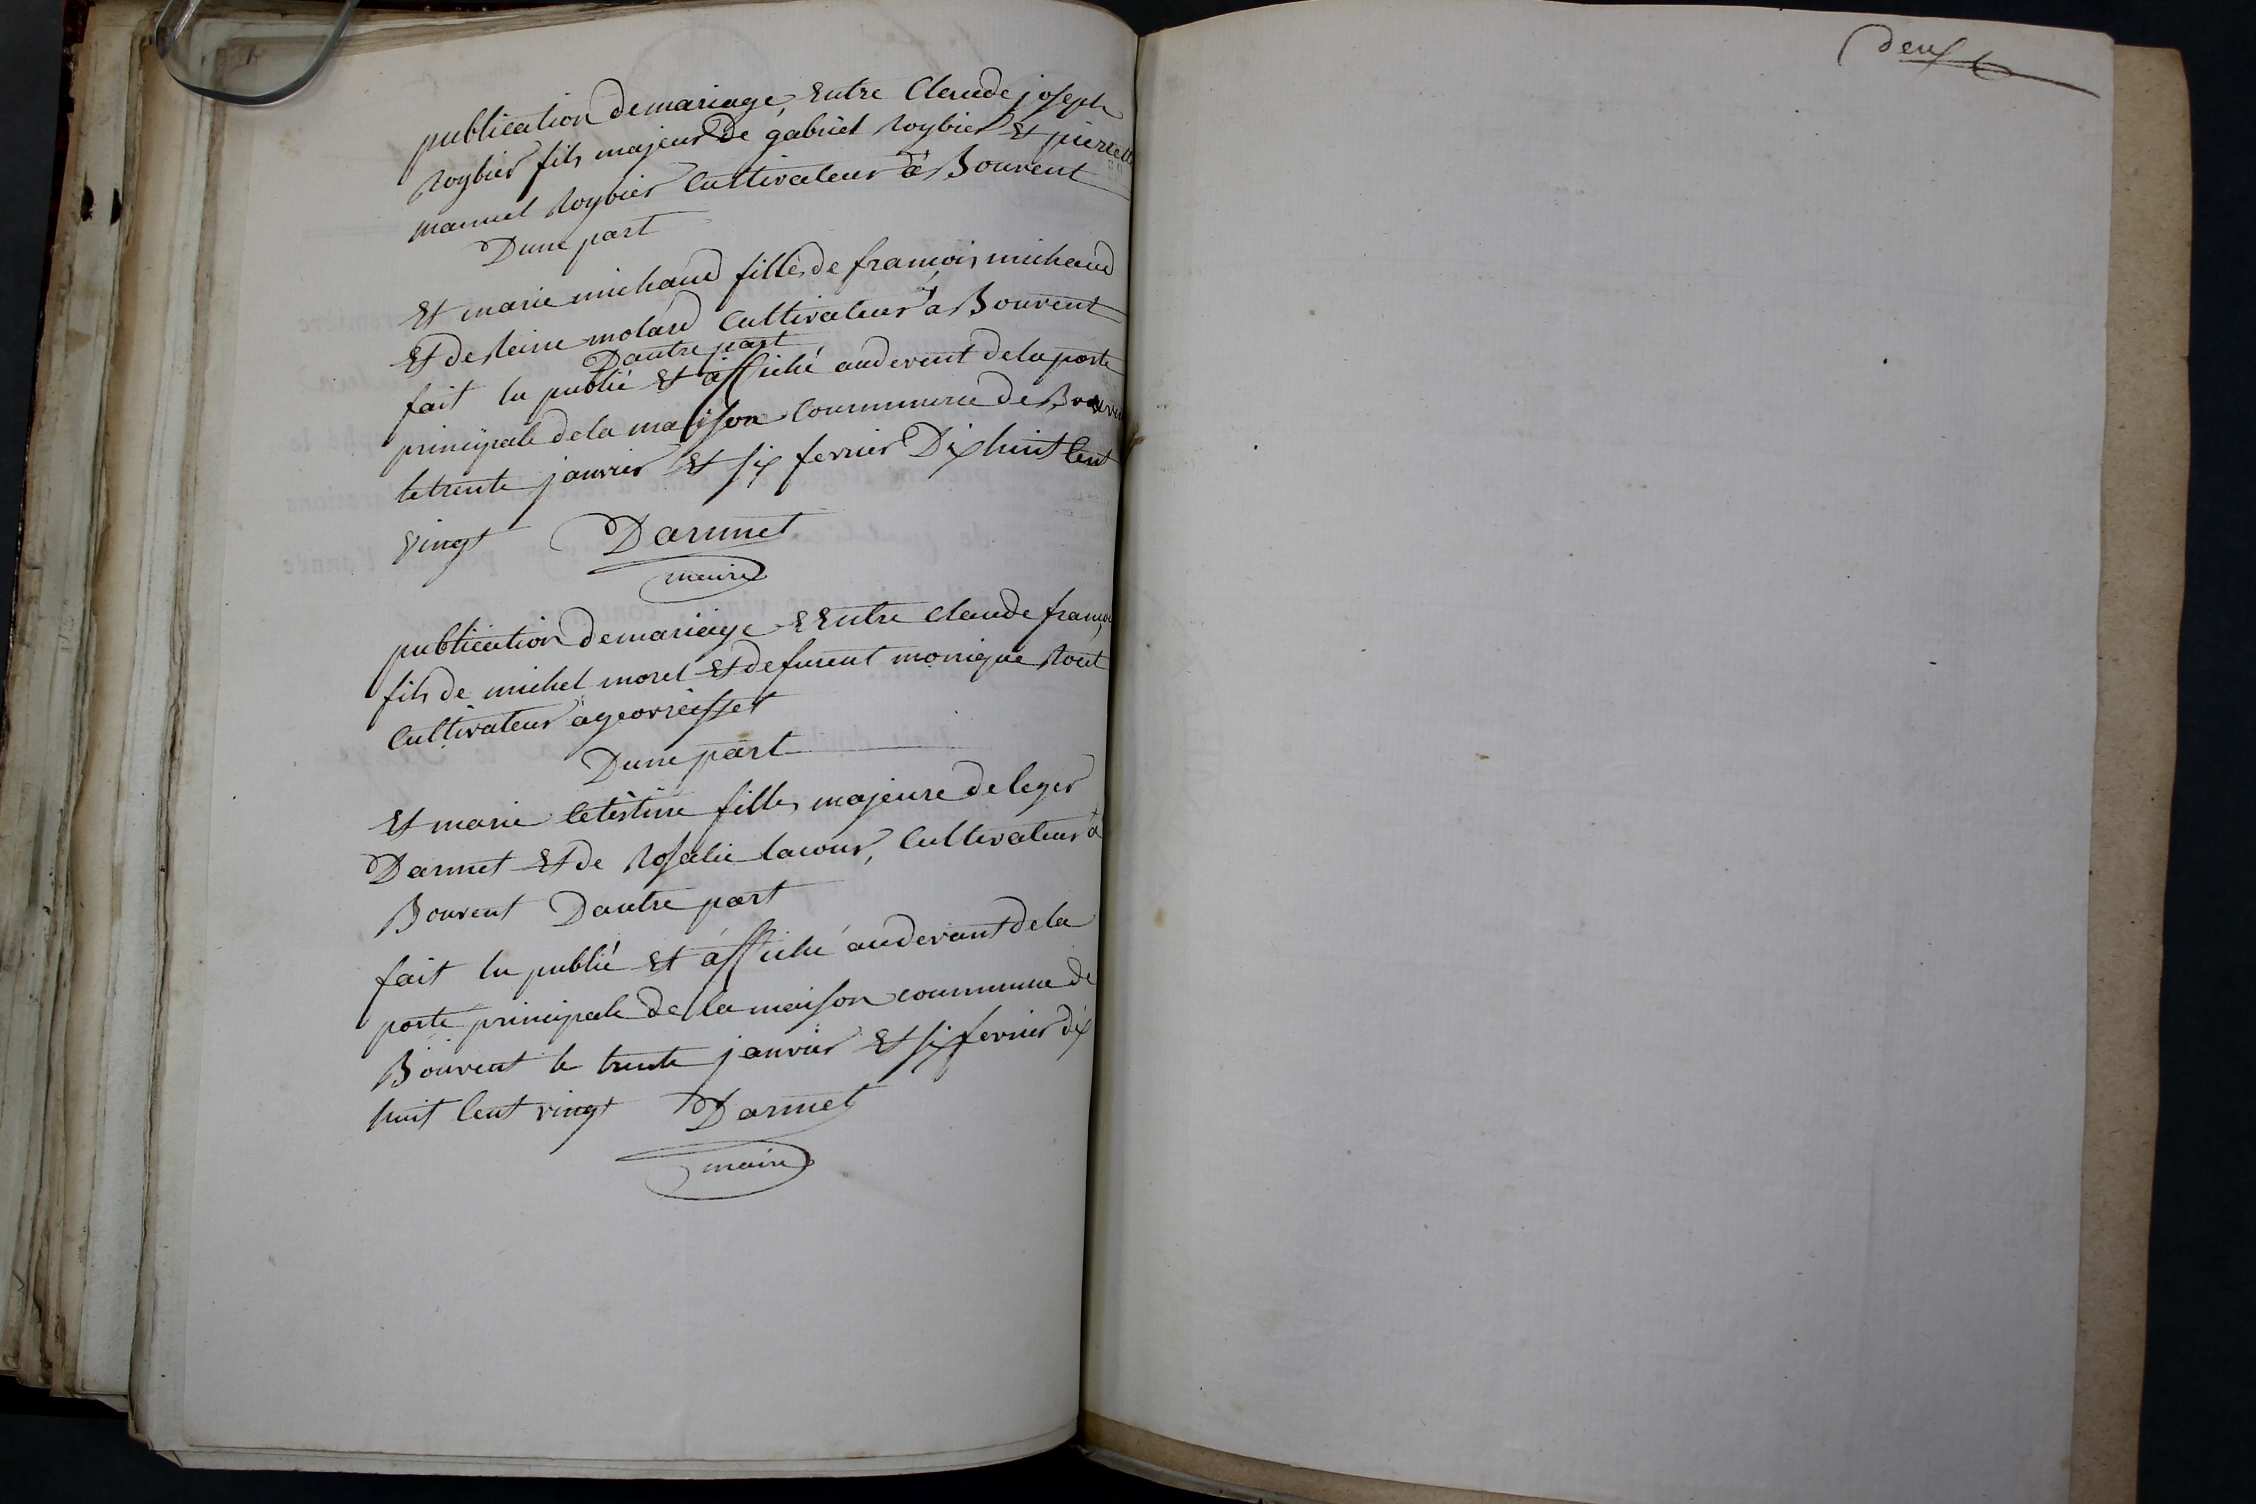 publication de mariage, Entre Claude joseph
Roybier fils majeur de gabriel Roybier Et pierrette
manuel Roybier Cultivateur à Bouvent
Dune part
Et marie michaud fille de françois michaud
Et de Reine molard Cultivateur à Bouvent
Dautre part
fait lu publié Et affiché audevent de la porte
principale de la maison Commune de Bouvent
le trente janvier Et six fevrier Dix huit Cent
vingt Darmet
maire
publication de mariage Entre Claude françois
fils de michel morel Et defunent monique
Cultivateur a geovreisset
Dune part
Et marie Celestine fille majeure de leger
Darmet Et de Rosalie lacour, Cultivateur à
Bouvent Dautre part
fait lu publié Et affiché audevant de la
porte principale de la maison commune de
Bouvent le trente janvier Et six fevrier dix
huit Cent vingt Darmet
maire
deux